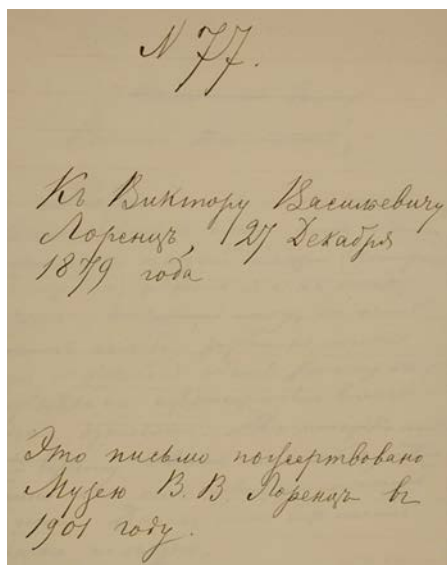 N 77.
Къ Виктору Васильевичу
Лоренцъ, 27 Декабря
1879 года
Это письмо пожертвовано
Музею В. В. Лоренцъ въ
1901 году.